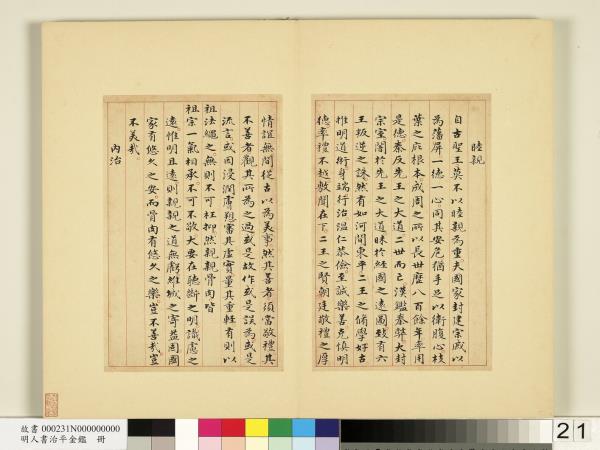 睦親
自古聖王莫不以睦親為重夫國家封建宗戚以
為藩屏一德一心同其安危猶手足以衛腹心枝
葉之庇根本成周之所以長世歷八百餘年率用
是德秦反先王之大道二世而亡漢鑑秦弊大封
宗室闇於先王之大道昧於經國之遠圖致有六
王叛逆之誅然有如河間東平二王之脩學好古
惟明道術身端行治溫仁恭儉至誠樂善克慎明
德率禮不越敷聞在下二王之賢朝廷敬禮之厚
情誼無間從古以為美事然其善者須當敬禮其
不善者觀其所為之過或是故作或是誤為或是
流言或因浸潤膚愬審其虛實量其重輕有則以
祖法繩之無則不可枉抑然親親骨肉皆
祖宗一氣相承不可不敬大要在聽斷之明識慮之
遠惟明且遠則親親之道無虧維城之寄益固國
家有悠久之安而骨肉有悠久之樂豈不善哉豈
不美哉
內治
故書 000231N000000000
明人書治平金鑑 冊
21